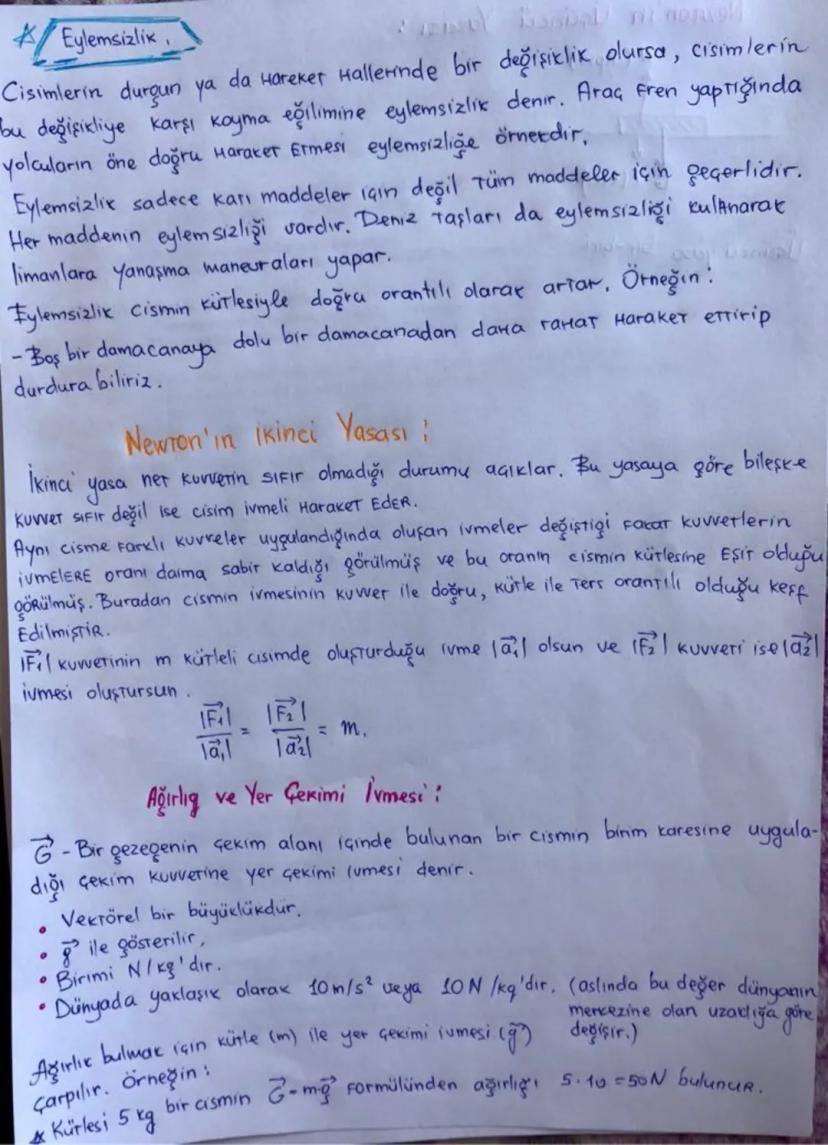 Eylemsizlik.
Cisimlerin durgun ya da Hareket Hallerinde bir değişiklik olursa, cisimlerin
bu değişikliye karşı koyma eğilimine eylemsizlik denir. Araç Fren yaptığında
yolcuların öne doğru Haraket Etmesi eylemsizliğe örnekdir.
Eylemsizlik sadece katı maddeler için değil Tüm maddeler için geçerlidir.
Her maddenin eylemsizliği vardır. Deniz Taşları da eylemsizliği kullAnarak
limanlara Yanaşma manevraları yapar.
Eylemsizlik Cismin kütlesiyle doğru orantılı olarak artar. Örneğin:
- Boş bir damacanaya dolu bir damacanadan daha rahat Haraket ettirip
durdura biliriz.
Newton'ın ikinci Yasası:
İkinci yasa net kuvvetin sıfır olmadığı durumu açıklar. Bu yasaya göre bileşke
kuvvet sıfır değil ise cisim ivmeli Haraket EdeR.
Aynı cisme Farklı kuvveler uygulandığında oluşan ivmeler değiştigi Fakat kuvvetlerin
ivmeLERE oranı daima sabir kaldığı görülmüş ve bu oranın cismin kütlesine Eşit olduğu
göRülmüş. Buradan cismin ivmesinin kuvvet ile doğru, kütle ile Ters orantılı olduğu keşf
EdilmişTiR.
|F₁⃗| kuvvetinin m kütleli cisimde oluşturduğu ivme |a₁⃗| olsun ve |F₂⃗| kuvveti ise |a₂⃗|
ivmesi oluştursun.
|F₁⃗| / |a₁⃗| = |F₂⃗| / |a₂⃗| = m.
Ağırlıg ve Yer Çekimi İvmesi:
G⃗ - Bir gezegenin çekim alanı içinde bulunan bir cismin birim karesine uygula-
dığı çekim kuvvetine yer çekimi ivmesi denir.
• Vektörel bir büyüklükdür.
• g⃗ ile gösterilir,
• Birimi N/kg'dır.
• Dünyada yaklaşık olarak 10m/s² veya 10N/kg'dır. (aslında bu değer dünyanın
merkezine olan uzaklığa göre
değişir.)
Ağırlık bulmak için kütle (m) ile yer çekimi ivmesi (g⃗)
çarpılır. Örneğin:
* Kütlesi 5 kg bir cismin G⃗=mg⃗ Formülünden ağırlığı 5.10=50N bulunur.